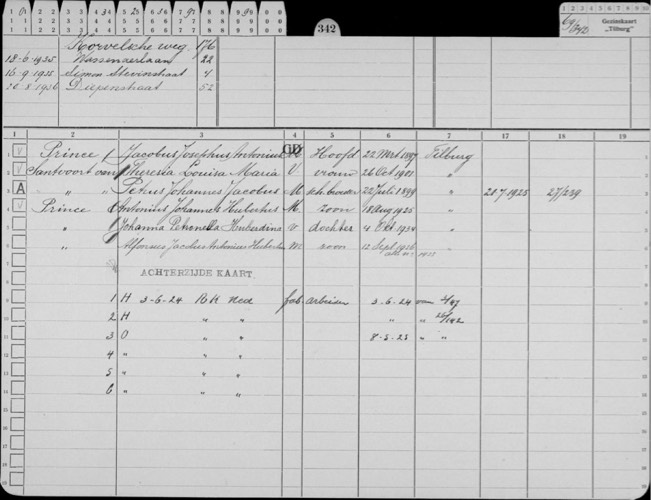 342
Gezinskaart
"Tilburg"
Korvelsche weg 176
18-6-1925 Wassenaerlaan 22
16-9-1935 Simon Stevinstraat 4
Diepenstraat 52
1 2 3 4 5 6 7 17 18 19
Prince Jacobus Josephus Antonius Hoofd 22 Mrt Tilburg
Santvoort van Theresia Louisa Maria V. vrouw 26 Oct 1901 "
A " " Petrus Johannes Jacobus M 22 Juli 1899 " 20.7.1925 27/239
Prince Antonius Johannes Hubertus M. zoon 18 Aug 1925 "
" Johanna Petronella Huberdina v dochter 4 Oct 1924 "
" Alfonsus Jacobus Antonius Hubertus m zoon 12 Sept 1926
ACHTERZIJDE KAART
1 H 3-6-24 R K Ned fab arbeider 3-6-24
2 H " " " "
3 O " " 8-5-23 " "
4 " " "
5 " " "
6 " " "